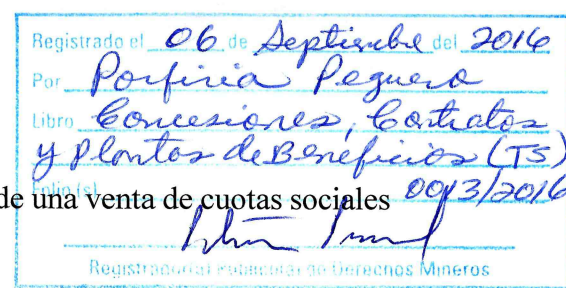 Registrado el 06 de Septiembre del 2016
Por Porfiria Peguero
Libro Concesiones, Contratos
y Plantas de Beneficios (TS)
Folio (s) 0013/2016
de una venta de cuotas sociales
Registrador(a) Público(a) de Derechos Mineros